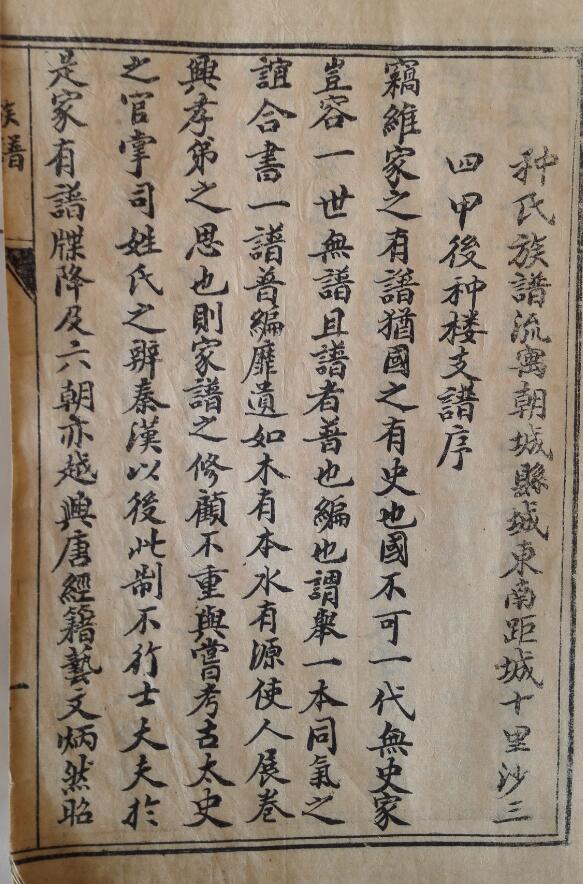 种氏族譜流寓朝城縣城東南距城十里沙三
四甲後种楼支譜序
竊維家之有譜猶國之有史也國不可一代無史家
豈容一世無譜且譜者普也編也謂舉一本同氣之
誼合書一譜普編靡遺如木有本水有源使人展卷
興孝弟之思也則家譜之修顧不重與嘗考古太史
之官掌司姓氏之辨秦漢以後此制不行士大夫於
是家有譜牒降及六朝亦越興唐經籍藝文炳然昭
族譜
一